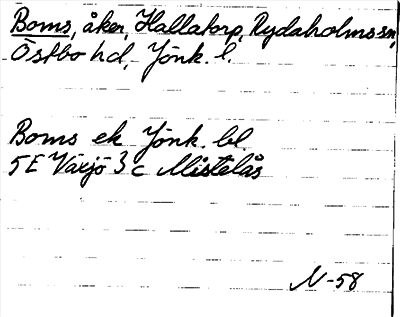 Boms, åker, Hallatorp, Rydaholms sn,
Östbo hd, Jönk. l.
Boms ek Jönk. bl.
5E Växjö 3 c Mistelås
N-58